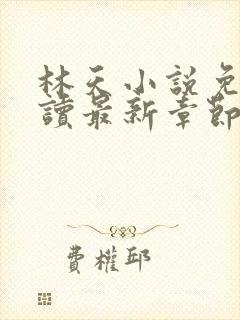 林天小説免
讀最新章節
費權邱